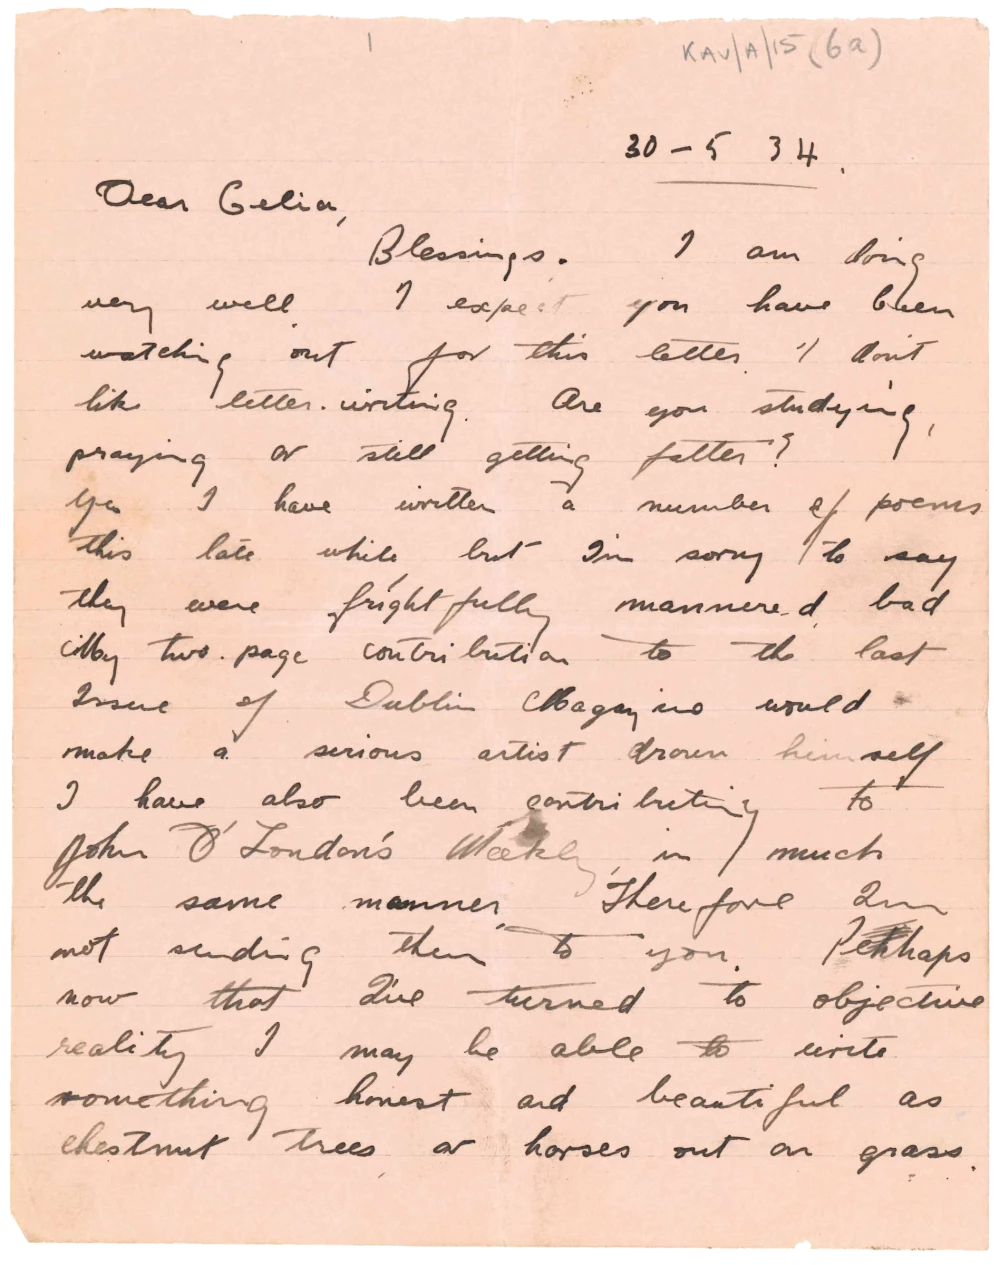 1
KAV/A/15 (6a)
30 - 5 34.
Dear Celia,
Blessings. I am doing
very well. I expect you have been
watching out for this letter. I don't
like letter-writing. Are you studying,
praying or still getting fatter?
Yes I have written a number of poems
this late while, but I'm sorry to say
they were frightfully mannered, bad
My two-page contribution to the last
Issue of Dublin Magazine would
make a serious artist drown himself
I have also been contributing to
John O'London's Weekly, in much
the same manner. Therefore I'm
not sending them to you. Perhaps
now that I've turned to objective
reality I may be able to write
something honest and beautiful as
chestnut trees or horses out on grass.